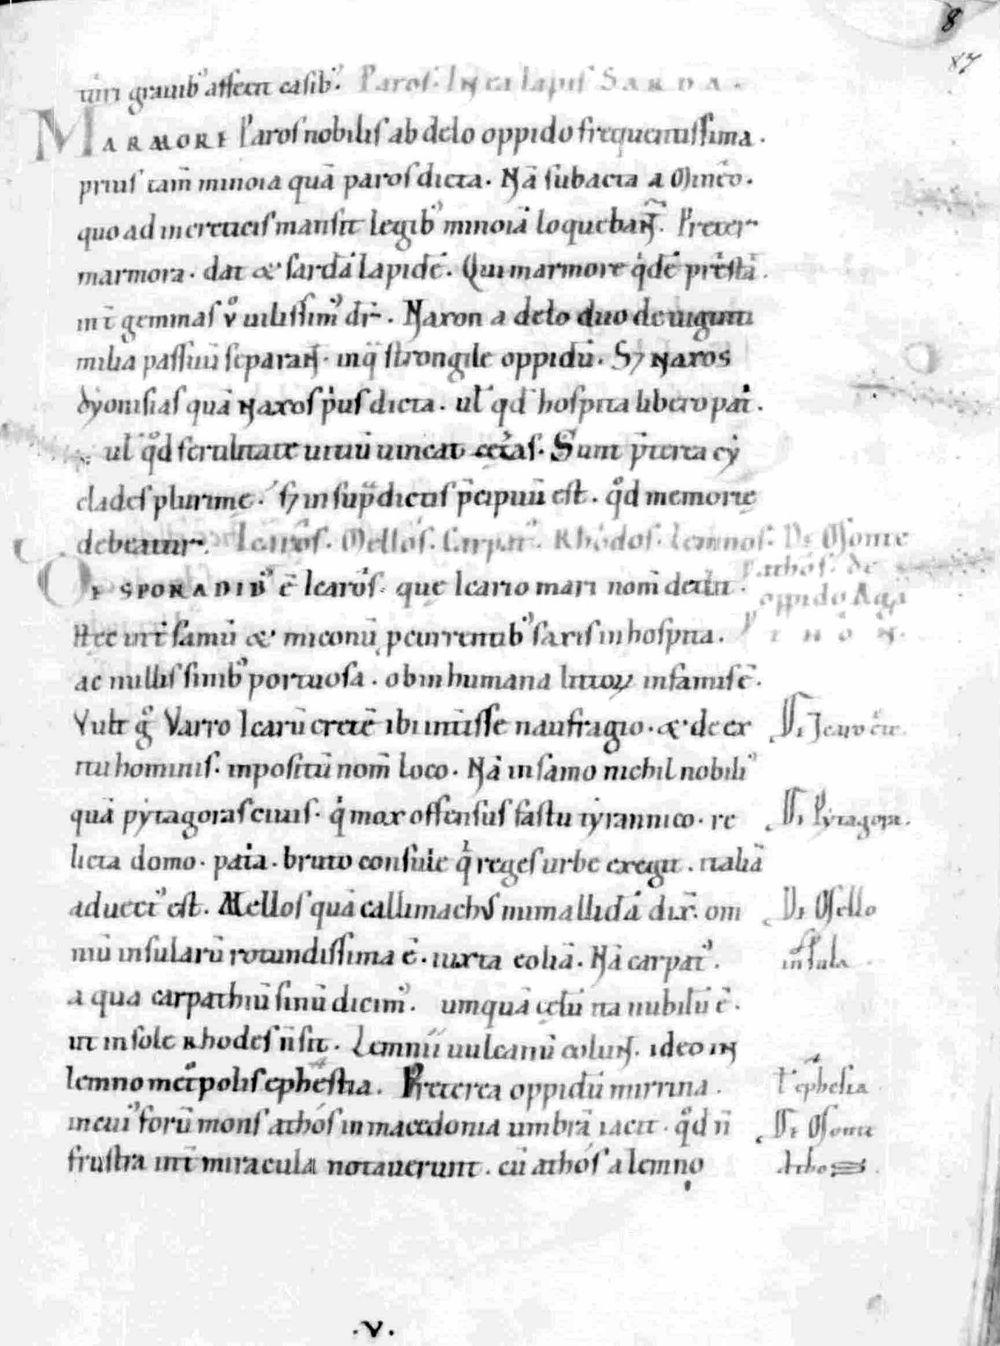 8
87
uiri grauib' affecti casib'. Paros. In ea lapis SARDA.
MARMORE Paros nobilis ab delo oppido frequentissima.
prius tam̄ minoia quā paros dicta. Nā subacta a Minoe.
quoad in creticis mansit legib' minoiā loquebant̄. Preter
marmora. dat & sardā lapidē. Qui marmore qͥdē prestā
int̄ gemmas ů uilissim' dr̄. Naxon a delo duo de uiginti
milia passuū separant̄. inq̄ strongile oppidū. Sꝫ naxos
dyonisias quā naxos pͥus dicta. ul̄ qd hospita libero patͥ.
ul̄ qd̊ fertilitate uitiū uincat cet̄as. Sunt p̄terea cy
clades plurime. sꝫ in sup̄dictis p̄cipuū est. qd̊ memorie
debeatur. Icaros. Mellos. Carpat'. Rhodos. Lemnos. De Monte
Athos. de
DE SPORADIB' ē Icaros. que Icario mari nom̄ dedit.
oppido Aga
Hec int̄ samū & miconū, p cinrentib' saxis inhospita.
ac nullis sinib' portuosa. ob inhumana litorꝝ infamis ē.
Vult gͦ Varro Icarū cretē ibi int̄isse naufragio. & de ex
De Icaro cre.
itu hominis. inpositū nom̄ loco. Nā in samo nichil nobili'
quā pytagoras ciuis. qͥ mox offensus fastu tyrannico. re
De Pytagora.
licta domo. patͥa. bruto consule qͥ reges urbe exegit. italiā
aduect' est. Mellos quā callimachus mimallidā dix̄. om
De Mello
niū insularū rotundissima ē. iuxta eoliā. Nā carpat'.
insula.
a qua carpathiū sinū dicim'. umquā celū ita nubilū ē.
ut in sole rhodes n̄ sit. Lemnii uulcanū colunt̄. ideo in
lemno met̊polis ephestia. Preterea oppidū mirrina.
ł ephesia.
in cui' forū mons athos in macedonia umbrā iacit. qd̊ n̄
De Monte
frustra int̄ miracula notauerunt. cū athos a lemno
Atho.
.v.